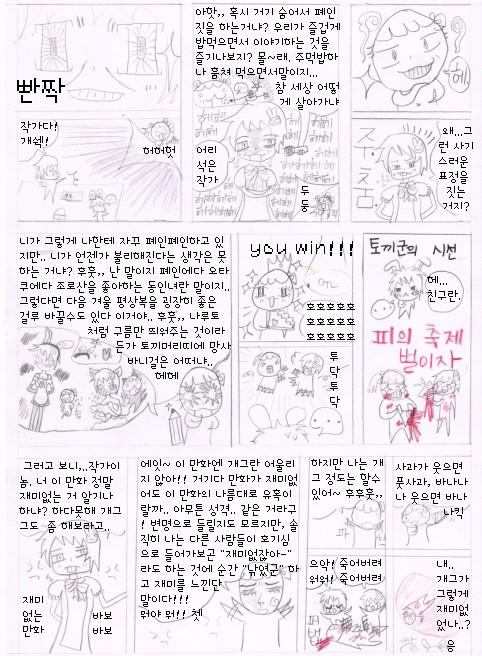 빤짝
아핫,, 혹시 거기 숨어서 폐인
짓을 하는거냐? 우리가 즐겁게
밥먹으면서 이야기하는 것을
즐기나보지? 몰~래. 주먹밥하
나 훔쳐 먹으면서말이지...
참 세상 어떻
게 살아가냐
헤
작가다!
개쉑!
허허헛
어리
석은
작가
두
둥
주
춤
왜...그
런 사기
스러운
표정을
짓는
거지?
니가 그렇게 나한테 자꾸 폐인폐인하고 있
지만.. 니가 언젠가 불리해진다는 생각은 못
하는 거냐? 후훗,, 난 말이지 폐인에다 오타
쿠에다 조로산을 좋아하는 동인녀란 말이지..
그렇다면 다음 겨울 평상복을 굉장히 좋은
걸루 바꿀수도 있다 이거야.. 후훗,, 나루토
처럼 구름만 띄워주는 것이라
든가 토끼머리띠에 망사
바니걸은 어떠냐..
헤헤
you win!!!
호호호호호
호호호호호
호호호호호
투
닥
투
닥
토끼군의 시선
헤...
친구란.
피의 축제
벌이자
그러고 보니,..작가이
놈. 너 이 만화 정말
재미없는 거 알기나
하냐? 하다못해 개그
그도 좀 해보라고..
재미
없는
만화
바보
바보
에잇~ 이 만화엔 개그란 어울리
지 않아!! 거기다 만화가 재미없
어도 이 만화의 나름대로 유혹이
랄까.. 아무튼 성격.. 같은 거라고
! 변명으로 들릴지도 모르지만, 솔
직히 나는 다른 사람들이 호기심
으로 들어가보곤 "재미없잖아-"
라도 하는 것에 순간 "낚였군" 하
고 재미를 느낀단
말이다!!!
뭐야 뭐!! 쳇
하지만 나는 개그
그 정도는 할수
있어~ 후후훗,,
사과가 웃으면
풋사과, 바나나
나 웃으면 바나
나킥
으악! 죽어버려
워워! 죽어버려
퍼
벅
내..
개그가
그렇게
재미없
었나..?
응